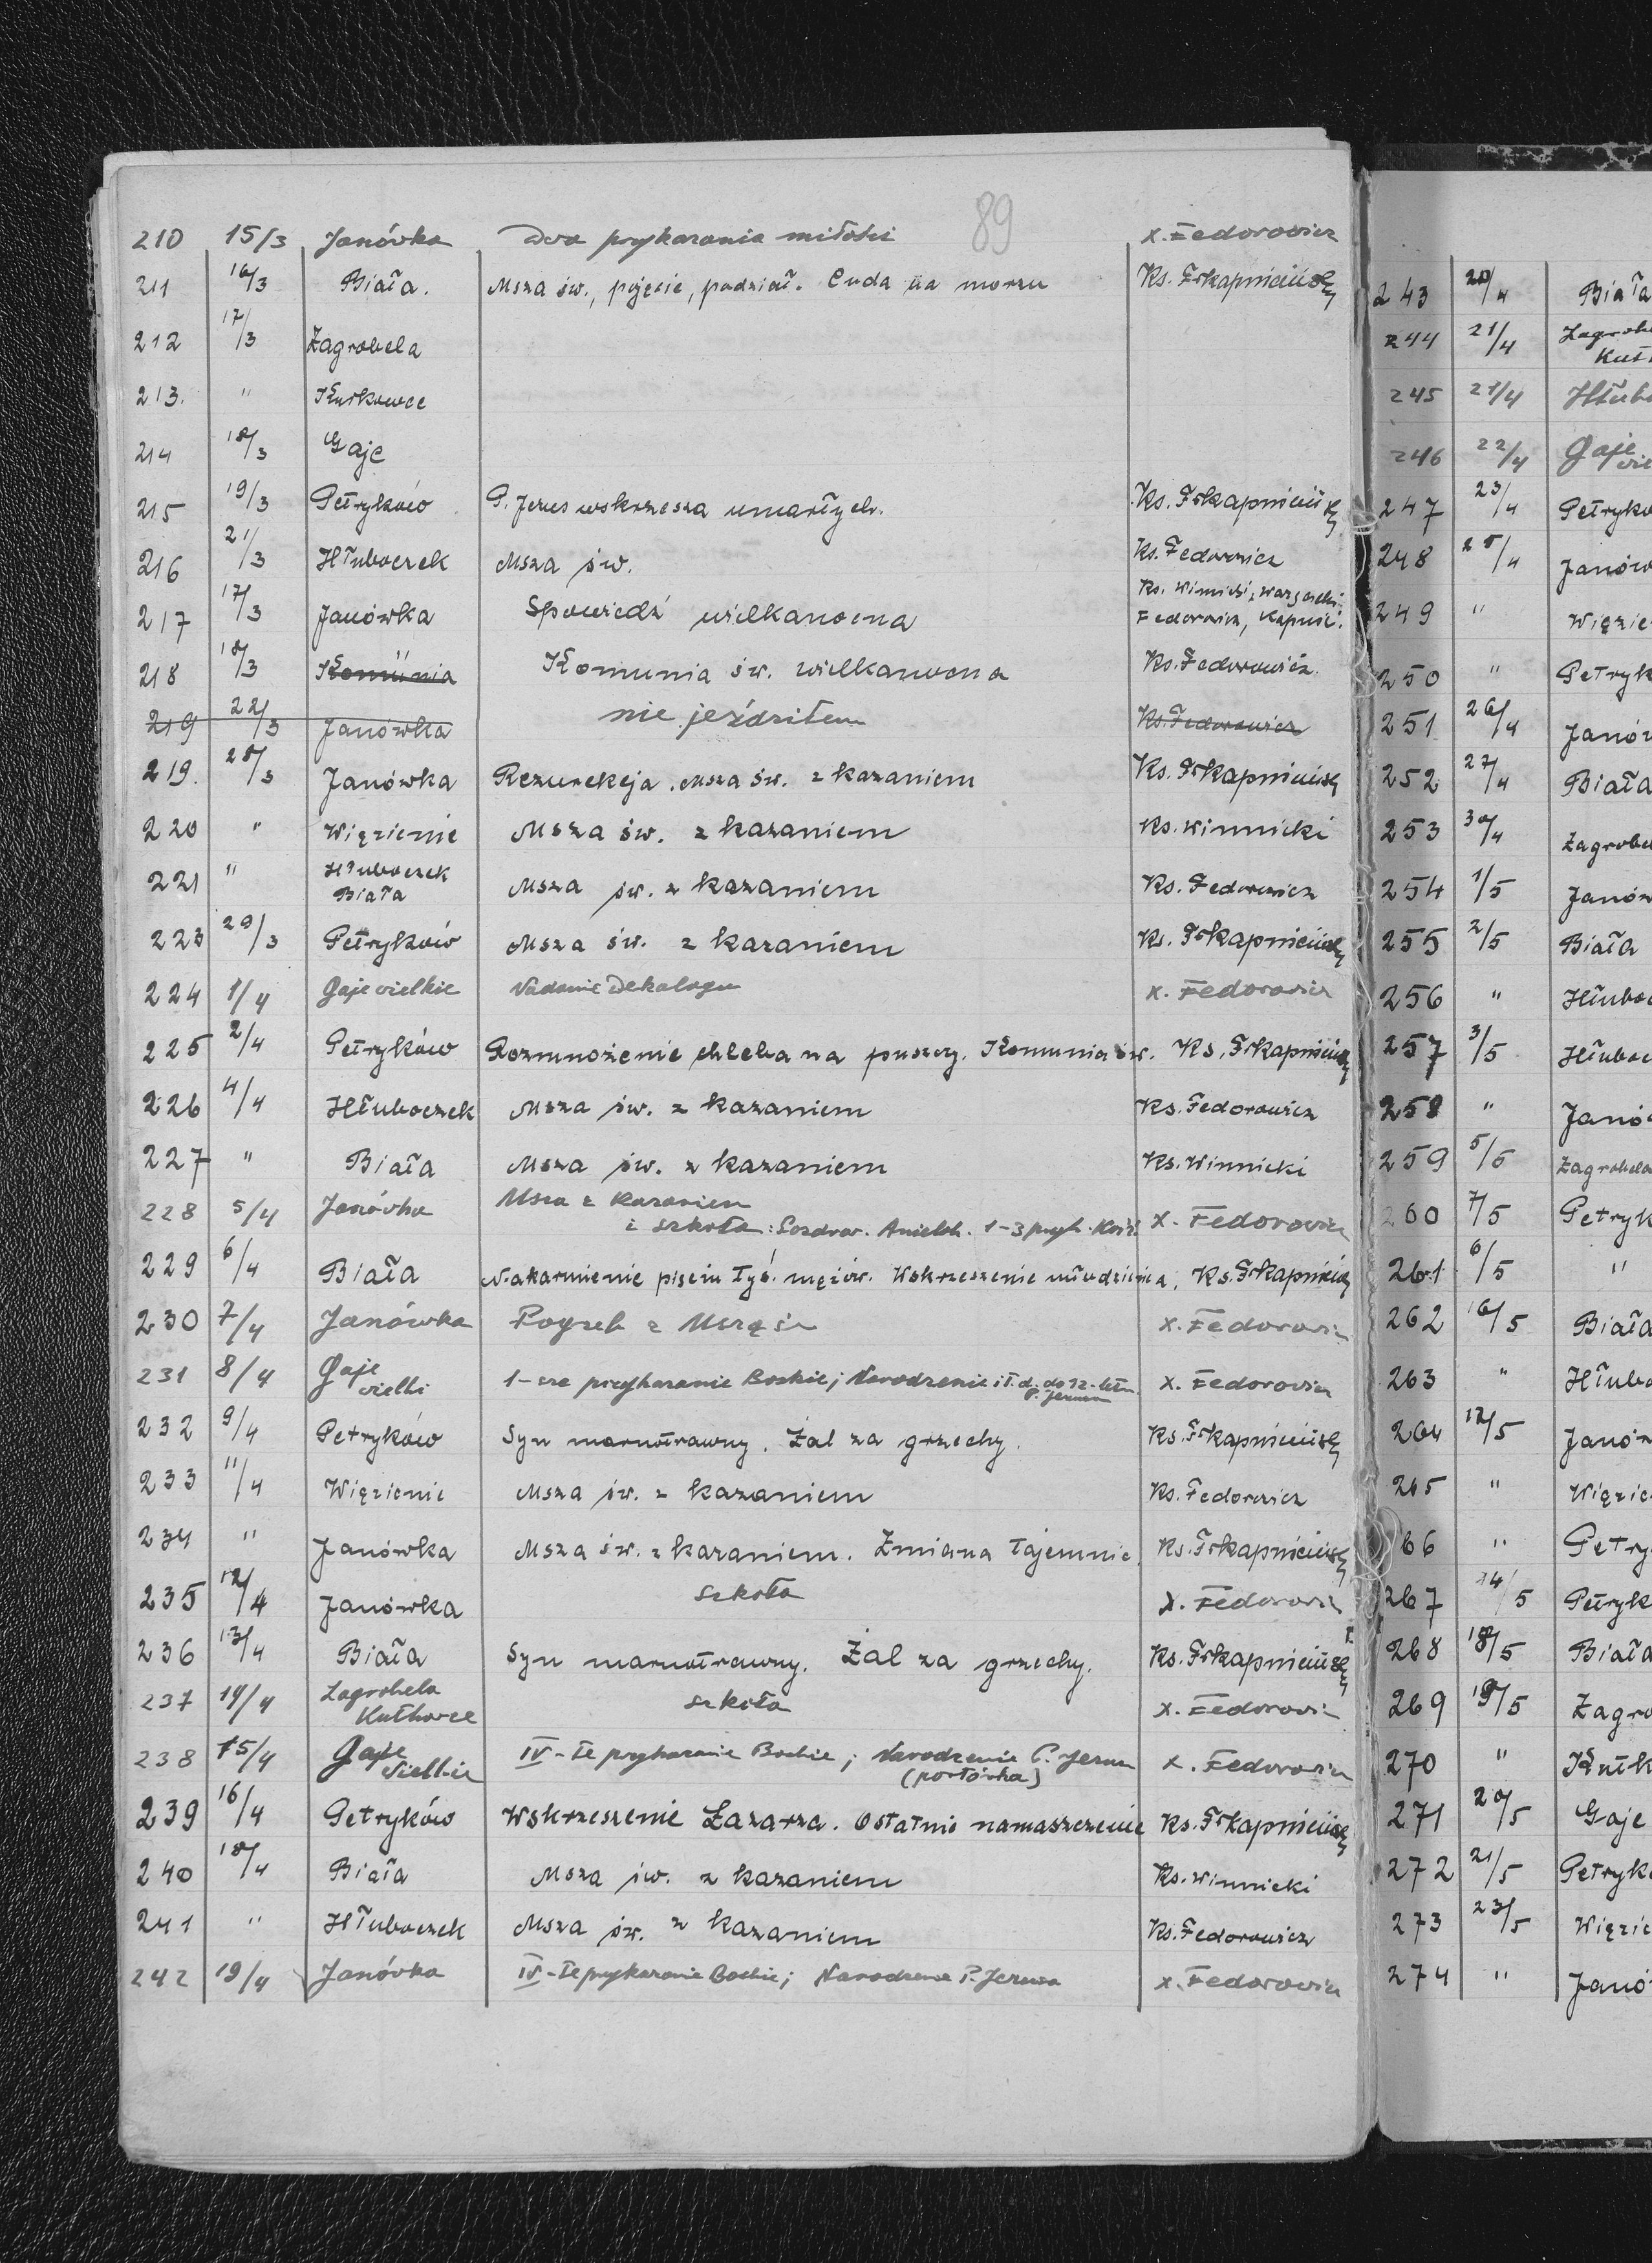 89
210 15/3 Janówka Dwa przykazania miłości x. Fedorowicz
211 16/3 Biała. Msza św., pojęcie, podział. Cuda na morzu Ks.
212 17/3 Zagrobela
213. " Kutkowce
214 18/3 Gaje
215 19/3 Petryków P. Jezus wskrzesza umarłych. Ks.
216 21/3 Hłuboczek Msza św. Ks. Fedorowicz
217 17/3 Janówka Spowiedź wielkanocna Ks. Winnicki,
Fedorowicz, Kapnic.
218 18/3 Komunia " Komunia św. wielkanocna Ks. Fedorowicz
219 22/3 Janówka nie jeździłem Ks. Fedorowicz
219. 28/3 Janówka Rezurekcja. Msza św. z kazaniem Ks.
220 " Więzienie Msza św. z kazaniem Ks. Winnicki
221 " Hłuboczek
Biała Msza św. z kazaniem Ks. Fedorowicz
223 29/3 Petryków Msza św. z kazaniem Ks.
224 1/4 Gaje wielkie Nadanie Dekalogu x. Fedorowicz
225 2/4 Petryków Rozmnożenie chleba na puszczy. Komunia św. Ks.
226 4/4 Hłuboczek Msza św. z kazaniem Ks. Fedorowicz
227 " Biała Msza św. z kazaniem Ks. Winnicki
228 5/4 Janówka Msza z kazaniem
i szkoła: Pozdrow. Anielsk. 1-3 przyk. Kość. x. Fedorowicz
229 6/4 Biała Nakarmienie pięciu tyś. mężów. Wskrzeszenie młodzieńca. Ks.
230 7/4 Janówka Pogrzeb z Mszą św x. Fedorowicz
231 8/4 Gaje
wielki 1-sze przykazanie Boskie; Narodzenie i t. d. do 12-letn.
P. Jezusa x. Fedorowicz
232 9/4 Petryków Syn marnotrawny. Żal za grzechy. Ks.
233 11/4 Więzienie Msza św. z kazaniem Ks. Fedorowicz
234 " Janówka Msza św. z kazaniem. Zmiana tajemnic. Ks.
235 12/4 Janówka szkoła x. Fedorowicz
236 13/4 Biała Syn marnotrawny. Żal za grzechy. Ks.
237 14/4 Zagrobela
Kutkowce szkoła x. Fedorowicz
238 15/4 Gaje
Wielkie IV-te przykazanie Boskie; Narodzenie P. Jezusa
(powtórka) x. Fedorowicz
239 16/4 Petryków Wskrzeszenie Łazarza. Ostatnie namaszczenie Ks.
240 18/4 Biała Msza św. z kazaniem Ks. Winnicki
241 " Hłuboczek Msza św. z kazaniem Ks. Fedorowicz
242 19/4 Janówka IV-te przykazanie Boskie; Narodzenie P. Jezusa x. Fedorowicz
243 20/4 Biała
244 21/4 Zagrobe
Kut
245 21/4 Hłubo
246 22/4 Gaje
wie
247 23/4 Petryko
248 25/4 Janów
249 " Więzie
250 " Petryk
251 26/4 Janów
252 27/4 Biała
253 30/4 Zagrobe
254 1/5 Janów
255 2/5 Biała
256 " Hłuboc
257 3/5 Hłuboc
258 " Janów
259 5/5 Zagrobela
260 7/5 Petryk
261 6/5 "
262 16/5 Biała
263 " Hłubo
264 12/5 Janów
265 " Więzie
66 " Petry
267 14/5 Petryk
268 18/5 Biała
269 19/5 Zagro
270 " Kutk
271 20/5 Gaje
272 21/5 Petryk
273 23/5 Więzie
274 " Janó